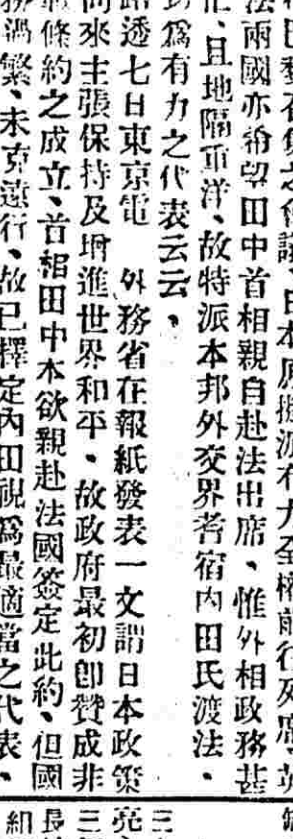 日本原擬派有力全權前行列席、英
法兩國亦希望田中首相親自赴法出席、惟外相政務甚
忙、且地隔重洋、故特派本邦外交界耆宿內田氏渡法、
爲有力之代表云云、
路透七日東京電　外務省在報紙發表一文謂日本政策
向來主張保持及增進世界和平、故政府最初卽贊成非
戰條約之成立、首相田中本欲親赴法國簽定此約、但國
務過繁、未克遠行、故已擇定內田視爲最適當之代表、